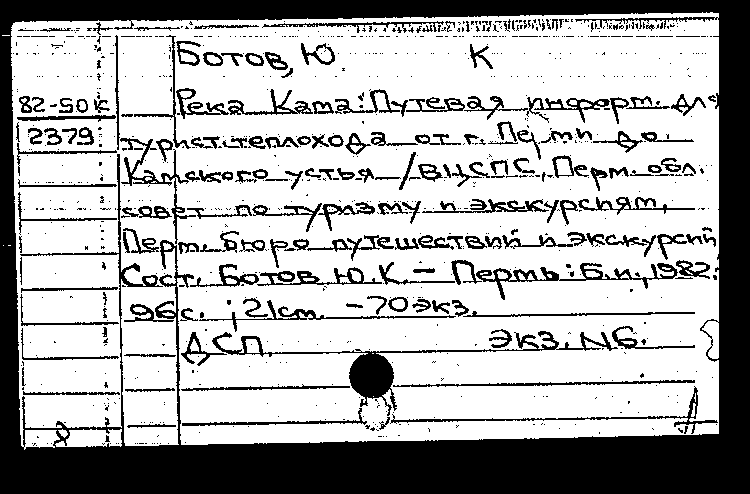 Ботов, Ю К
82-50к Река Кама: Путевая информ. для
2379 турист. теплохода от г. Перми до
Камского устья / ВЦСПС, Перм. обл.
совет по туризму и экскурсиям,
Перм. бюро путешествий и экскурсий
Сост. Ботов Ю.К. – Пермь: Б.и., 1982.
96с. ; 21см. – 70экз.
ДСП. Экз. №6.